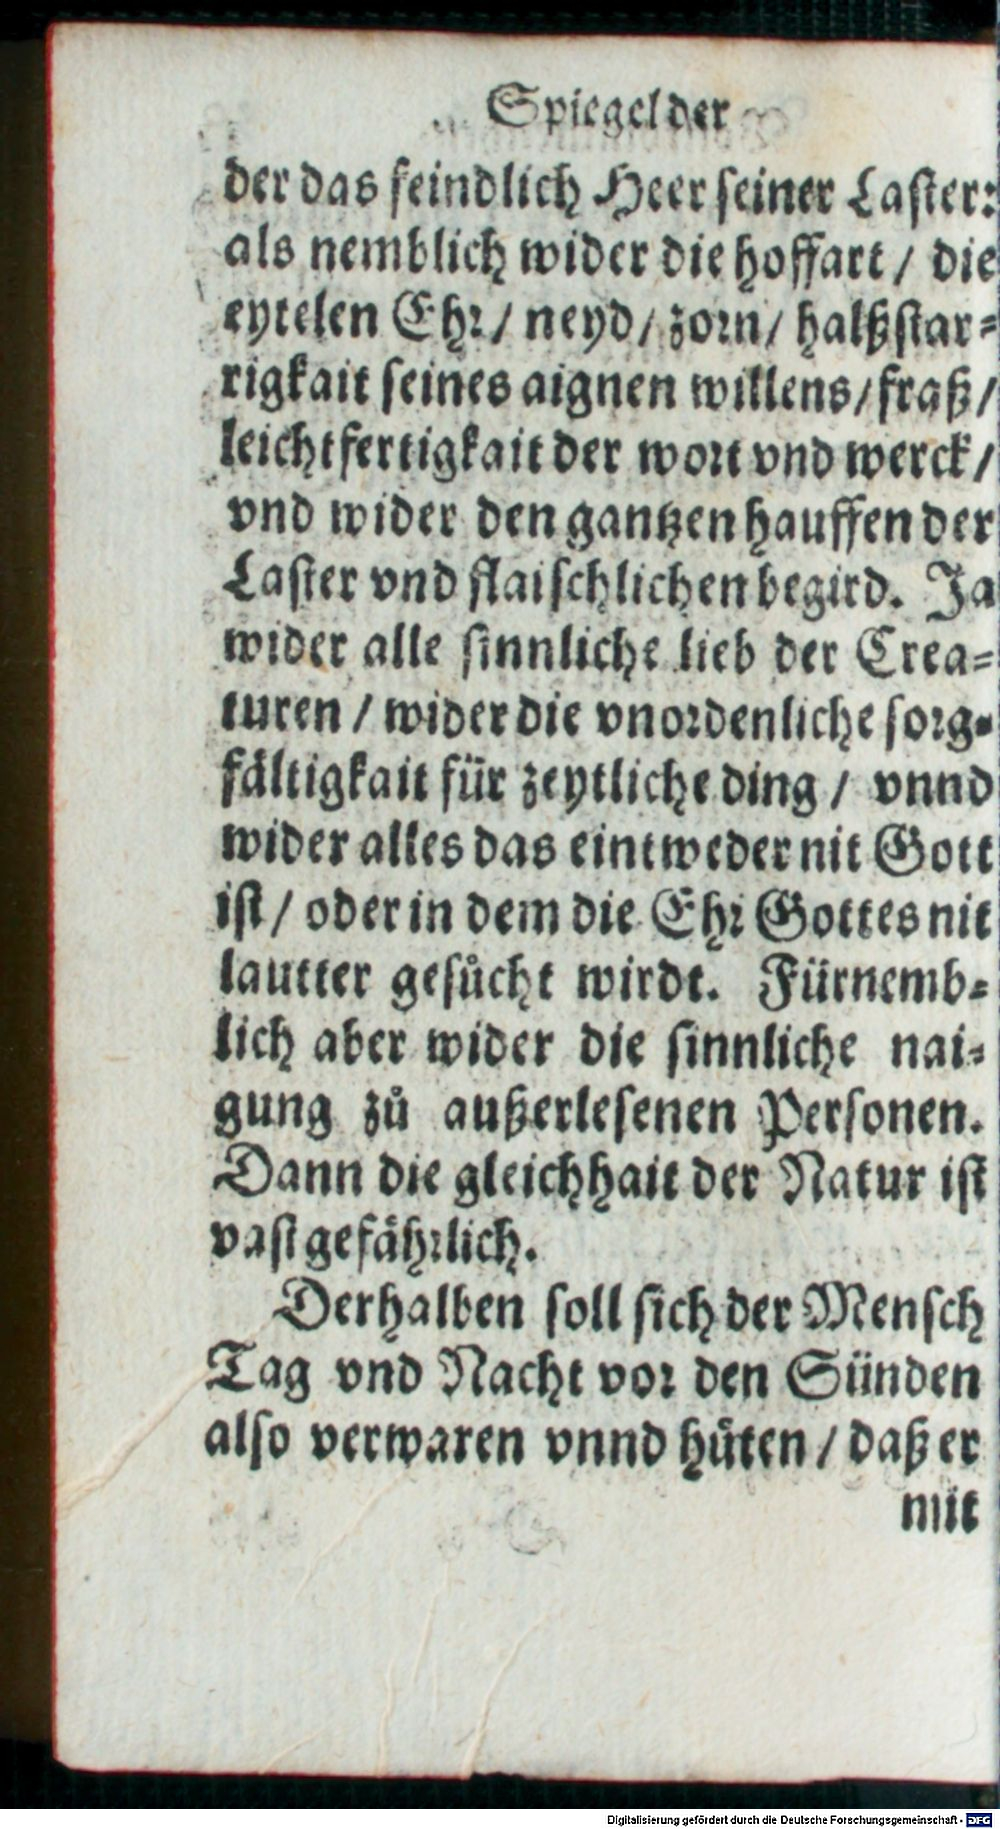 Spiegel der
der das feindlich Heer seiner Laster:
als nemblich wider die hoffart / die
eytelen Ehr / neyd / zorn / halßstar-
rigkait seines aignen willens / fraß /
leichtfertigkait der wort vnd werck /
vnd wider den gantzen hauffen der
Laster vnd flaischlichen begird. Ja
wider alle sinnliche lieb der Crea-
turen / wider die vnordenliche sorg-
fältigkait für zeytliche ding / vnnd
wider alles das eintweder nit Gott
ist / oder in dem die Ehr Gottes nit
lautter gesůcht wirdt. Fürnemb-
lich aber wider die sinnliche nai-
gung zů außerlesenen Personen.
Dann die gleichhait der Natur ist
vast gefährlich.
Derhalben soll sich der Mensch
Tag vnd Nacht vor den Sünden
also verwaren vnnd hüten / daß er
mit
Digitalisierung gefördert durch die Deutsche Forschungsgemeinschaft - DFG